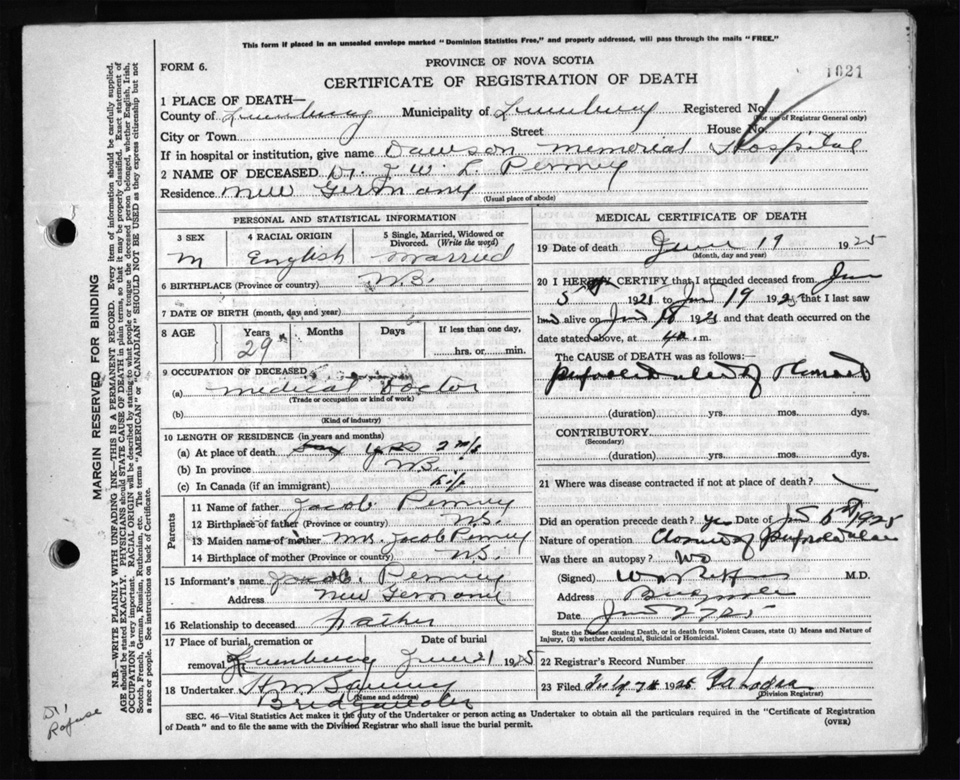 This form if placed in an unsealed envelope marked "Dominion Statistics Free," and properly addressed, will pass through the mails "FREE."
FORM 6.
PROVINCE OF NOVA SCOTIA
1021
CERTIFICATE OF REGISTRATION OF DEATH
1 PLACE OF DEATH—
County of Lunenburg Municipality of Lunenburg Registered No.
(For use of Registrar General only)
City or Town Street House No.
If in hospital or institution, give name Dawson Memorial Hospital
2 NAME OF DECEASED Dr. J W L Penney
Residence New Germany
(Usual place of abode)
PERSONAL AND STATISTICAL INFORMATION
3 SEX 4 RACIAL ORIGIN 5 Single, Married, Widowed or Divorced. (Write the word)
M English Married
6 BIRTHPLACE (Province or country) N.S.
7 DATE OF BIRTH (month, day and year)
8 AGE Years Months Days If less than one day,
29 hrs. or min.
9 OCCUPATION OF DECEASED
(a) Medical Doctor
(Trade or occupation or kind of work)
(b)
(Kind of industry)
10 LENGTH OF RESIDENCE (in years and months)
(a) At place of death
(b) In province N.S.
(c) In Canada (if an immigrant)
Parents
11 Name of father Jacob Penney
12 Birthplace of father (Province or country) N.S.
13 Maiden name of mother Mrs. Jacob Penney
14 Birthplace of mother (Province or country) N.S.
15 Informant's name Jacob Penney
Address New Germany
16 Relationship to deceased Father
17 Place of burial, cremation or Date of burial
removal Lunenburg June 21 1925
18 Undertaker
(Name and address)
Bridgewater
MEDICAL CERTIFICATE OF DEATH
19 Date of death June 19 1925
(Month, day and year)
20 I HEREBY CERTIFY that I attended deceased from Jun
5 1921 to Jun 19 1925 that I last saw
him alive on Jun 18 192 and that death occurred on
date stated above, at m.
The CAUSE of DEATH was as follows:—
(duration) yrs. mos. dys.
CONTRIBUTORY
(Secondary)
(duration) yrs. mos. dys.
21 Where was disease contracted if not at place of death?
Did an operation precede death? yes Date of 1925
Nature of operation Closure of
Was there an autopsy? No
(Signed) M.D.
Address
Date
State the Disease causing Death, or in death from Violent Causes, state (1) Means and Nature of Injury, (2) whether Accidental, Suicidal or Homicidal.
22 Registrar's Record Number
23 Filed July 7th 1925
(Division Registrar)
SEC. 46—Vital Statistics Act makes it the duty of the Undertaker or person acting as Undertaker to obtain all the particulars required in the "Certificate of Registration
of Death" and to file the same with the Division Registrar who shall issue the burial permit. (OVER)
MARGIN RESERVED FOR BINDING
N.B.—WRITE PLAINLY WITH UNFADING INK—THIS IS A PERMANENT RECORD. Every item of information should be carefully supplied.
AGE should be stated EXACTLY. PHYSICIANS should STATE CAUSE OF DEATH in plain terms, so that it may be properly classified. Exact statement of
OCCUPATION is very important. RACIAL ORIGIN will be described by stating to what people or tongue the deceased person belonged, whether English, Irish,
Scotch, French, German, Russian, Ruthenian, etc. The terms "AMERICAN" or "CANADIAN" SHOULD NOT BE USED as they express citizenship but not
a race or people. See instructions on back of Certificate.